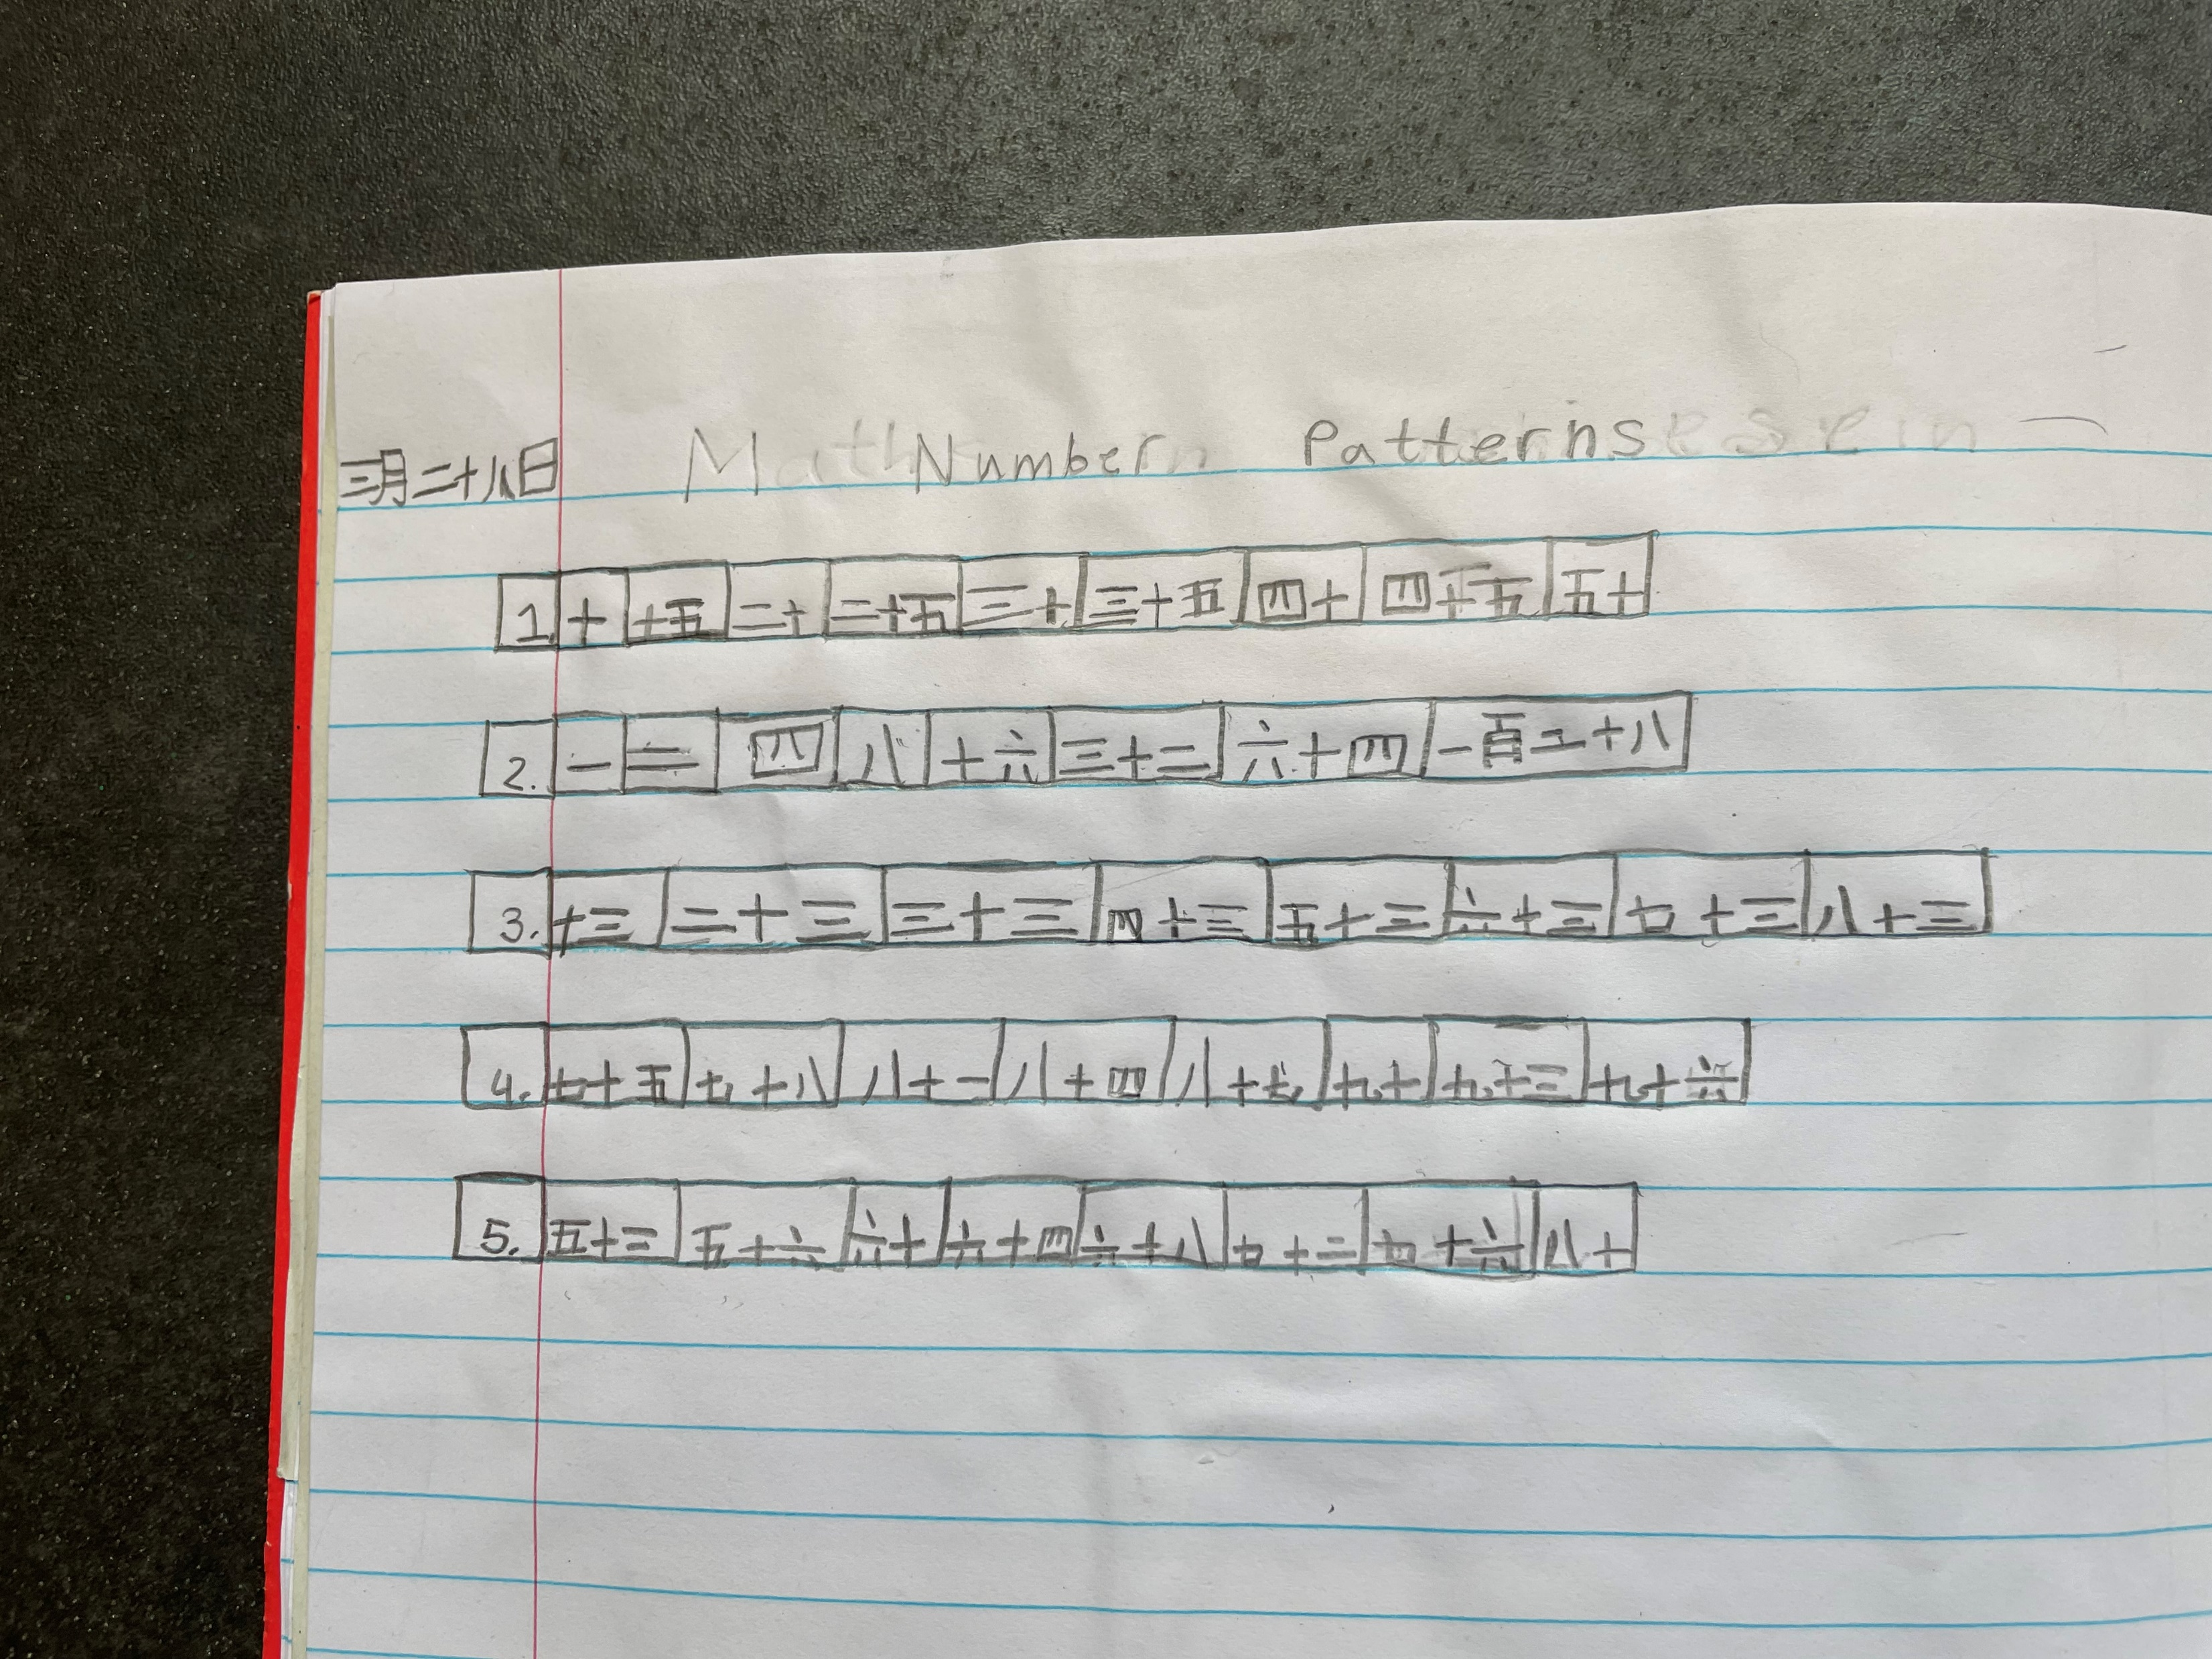 三月二十八日 Math Number Patterns
1 十 十五 二十 二十五 三十 三十五 四十 四十五 五十
2. 一 二 四 八 十六 三十二 六十四 一百二十八
3. 十三 二十三 三十三 四十三 五十三 六十三 七十三 八十三
4. 七十五 七十八 八十一 八十四 八十七 九十 九十三 九十六
5. 五十二 五十六 六十 六十四 六十八 七十二 七十六 八十